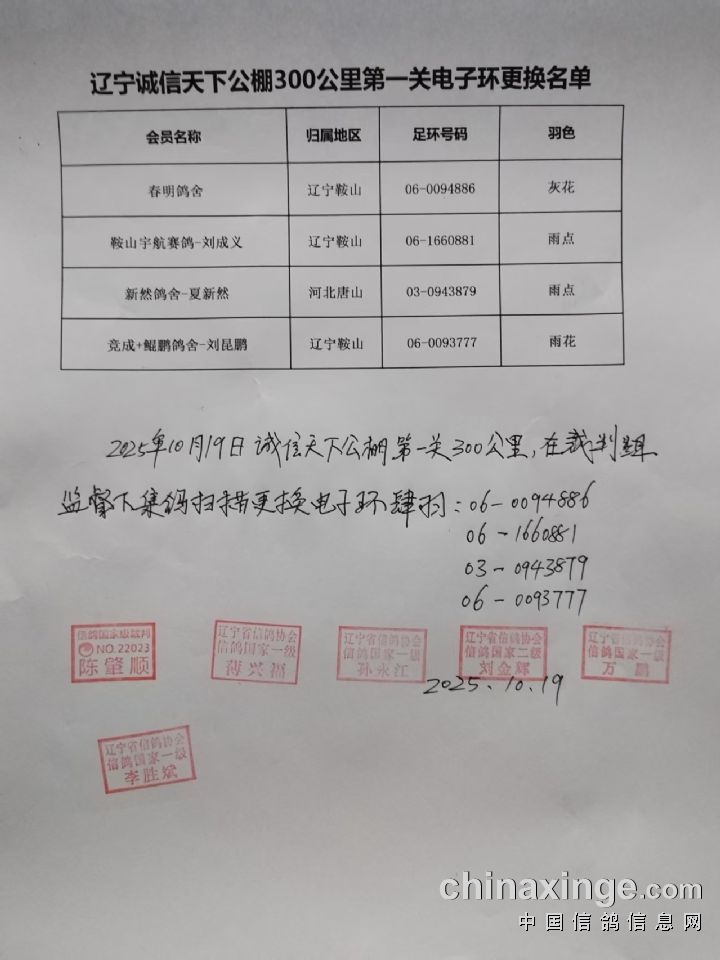 辽宁诚信天下公棚300公里第一关电子环更换名单
会员名称 归属地区 足环号码 羽色
春明鸽舍 辽宁鞍山 06-0094886 灰花
鞍山宇航赛鸽-刘成义 辽宁鞍山 06-1660881 雨点
新然鸽舍-夏新然 河北唐山 03-0943879 雨点
竞成+鲲鹏鸽舍-刘昆鹏 辽宁鞍山 06-0093777 雨花
2025年10月19日诚信天下公棚第一关300公里,在裁判组
监督下集鸽扫描更换电子环肆羽:06-0094886
06-1660881
03-0943879
06-0093777
信鸽国家级裁判
NO.22023
陈肇顺
辽宁省信鸽协会
信鸽国家一级
薄兴福
辽宁省信鸽协会
信鸽国家一级
孙永江
辽宁省信鸽协会
信鸽国家二级
刘金辉
辽宁省信鸽协会
信鸽国家一级
万鹏
2025.10.19
辽宁省信鸽协会
信鸽国家一级
李胜斌
chinaxinge.com
中国信鸽信息网